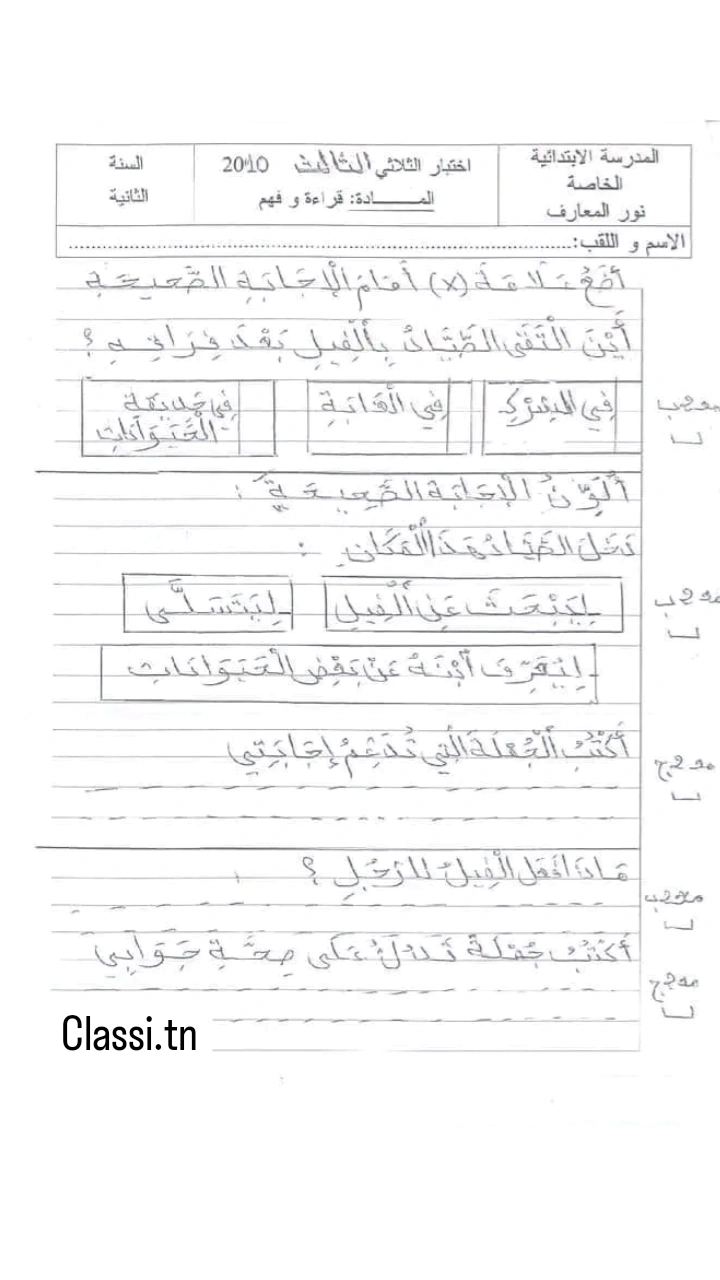 المدرسة الابتدائية
الخاصة
نور المعارف
اختبار الثلاثي الثالث 2010
المـــــادة: قراءة و فهم
السنة
الثانية
الاسم و اللقب:
أَضَعُ عَلَامَةَ (x) أَمَامَ الْإِجَابَةِ الصَّحِيحَةِ
أَيْنَ الْتَقَى الصَّيَّادُ بِالْفِيلِ بَعْدَ فِرَاقِهِ ؟
فِي السِّرْكِ
فِي الْغَابَةِ
فِي حَدِيقَةِ
الْحَيَوَانَاتِ
مع2ب
أُلَوِّنُ الْإِجَابَةَ الصَّحِيحَةَ :
دَخَلَ الصَّيَّادُ هَذَا الْمَكَانَ :
- لِيَبْحَثَ عَنِ الْفِيلِ
- لِيَتَسَلَّى
مع2ب
- لِيُعَرِّفَ ابْنَهُ عَنْ بَعْضِ الْحَيَوَانَاتِ
أَكْتُبُ الْجُمْلَةَ الَّتِي تُدَعِّمُ إِجَابَتِي
مع2ج
مَاذَا فَعَلَ الْفِيلُ لِلرَّجُلِ ؟
مع2ب
أَكْتُبُ جُمْلَةً تَدُلُّ عَلَى صِحَّةِ جَوَابِي
مع2ج
Classi.tn